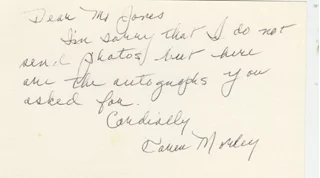 Dear Mr Jones
I'm sorry that I do not
send photos, but here
are the autographs you
asked for.
Cordially
Karen Morley